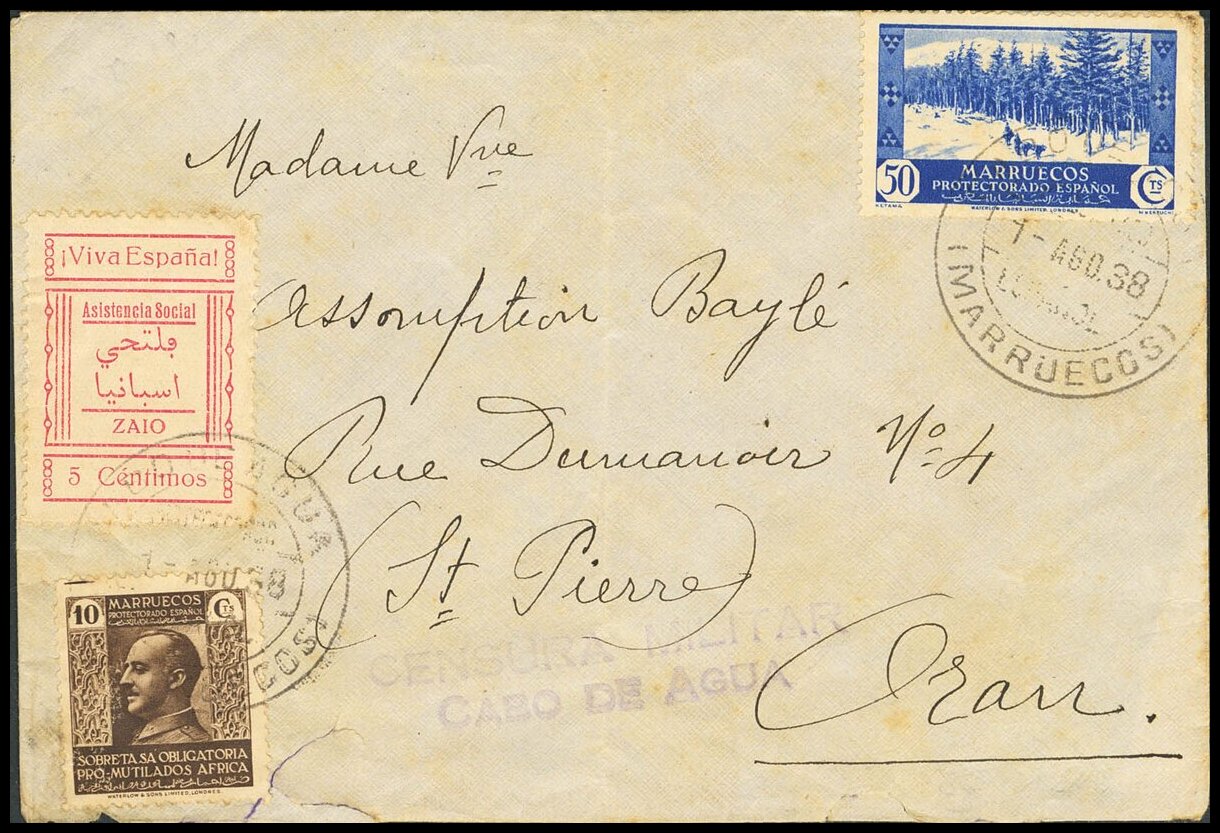 Madame Vve
Assomption Baylé
Rue Dumanoir Nº 4
(St Pierre)
Oran.
50 MARRUECOS CTS
PROTECTORADO ESPAÑOL
KETAMA WATERLOW & SONS LIMITED, LONDRES. M. BERTUCHI
1-AGO.38
(MARRUECOS)
¡Viva España!
Asistencia Social
فلتحي
اسبانيا
ZAIO
5 Céntimos
AGUA
10 MARRUECOS CTS
PROTECTORADO ESPAÑOL
SOBRETASA OBLIGATORIA
PRO-MUTILADOS AFRICA
WATERLOW & SONS LIMITED, LONDRES.
CENSURA MILITAR
CABO DE AGUA